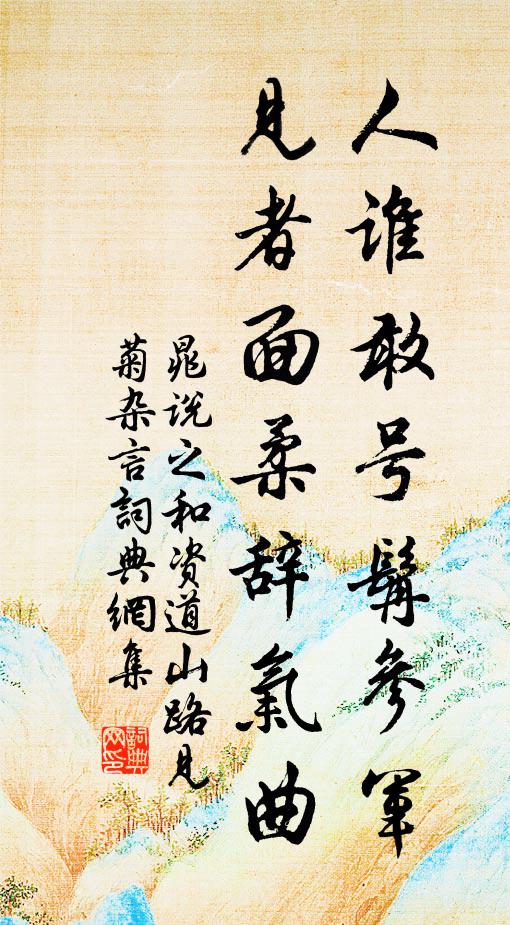 人谁敢号髯参军
见者面柔辞氣曲
晁说之和资道山路见
菊杂言詞典網集
詞典网印